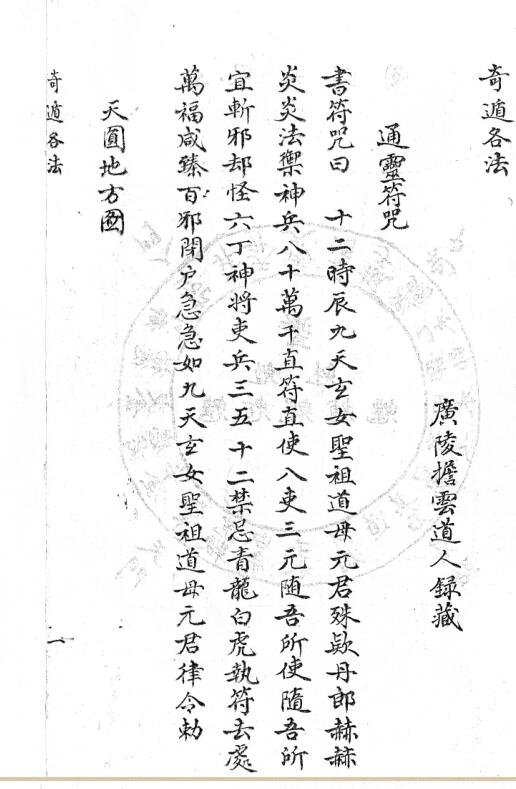 奇遁各法
廣陵擔雲道人録藏
通靈符咒
書符咒曰 十二時辰九天玄女聖祖道母元君殊歘丹郎赫赫
炎炎法禦神兵八十萬千直符直使八吏三元随吾所使隨吾所
宜斬邪却怪六丁神將吏兵三五十二禁忌青龍白虎執符去處
萬福咸臻百邪閉户急急如九天玄女聖祖道母元君律令勅
天圓地方圖
奇遁各法
一